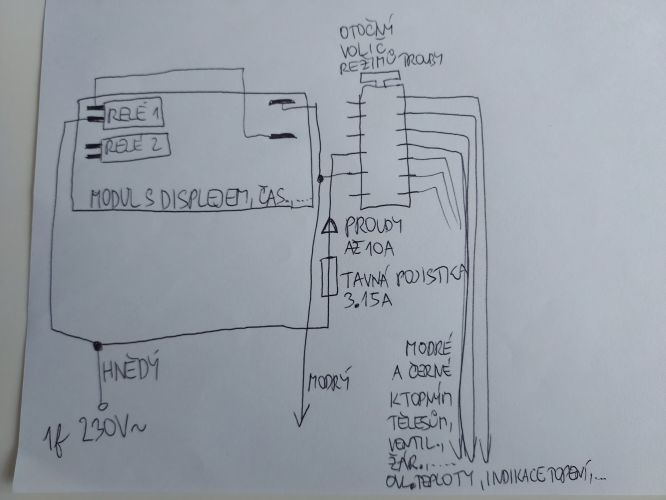 OTOČNÝ
VOLIČ
REŽIMŮ TROUBY
RELÉ 1
RELÉ 2
MODUL S DISPLEJEM, ČAS.,...
PROUDY
AŽ 10A
TAVNÁ POJISTKA
3.15A
HNĚDÝ
1f 230V~
MODRÝ
MODRÉ
A ČERNÉ
K TOPNÝM
TĚLESŮM,
VENTIL.,
ŽÁR.,....
OVL. TEPLOTY, INDIKACE TOPENÍ,...